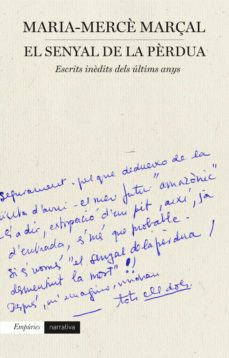 MARIA-MERCÈ MARÇAL
EL SENYAL DE LA PÈRDUA
Escrits inèdits dels últims anys
Segurament - pel que dedueixo de la
visita d'avui - el meu futur "amazònic"
és a dir, extirpació d'un pit, així, ja
d'entrada, s'més que probable.
Si és només "el senyal de la pèrdua /
desmentint la mort" !!
Després, m'imagino, vindran
tots els dols.
Empúries
narrativa